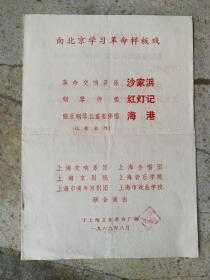 向北京学习革命样板戏
革命交响音乐 沙家浜
钢琴伴唱 红灯记
弦乐钢琴五重奏伴唱 海港
上海交响乐团 上海合唱团
上海京剧院 上海音乐学院
上海市青年京剧团 上海市戏曲学校
联合演出
于上海文化革命广场
一九六九年八月